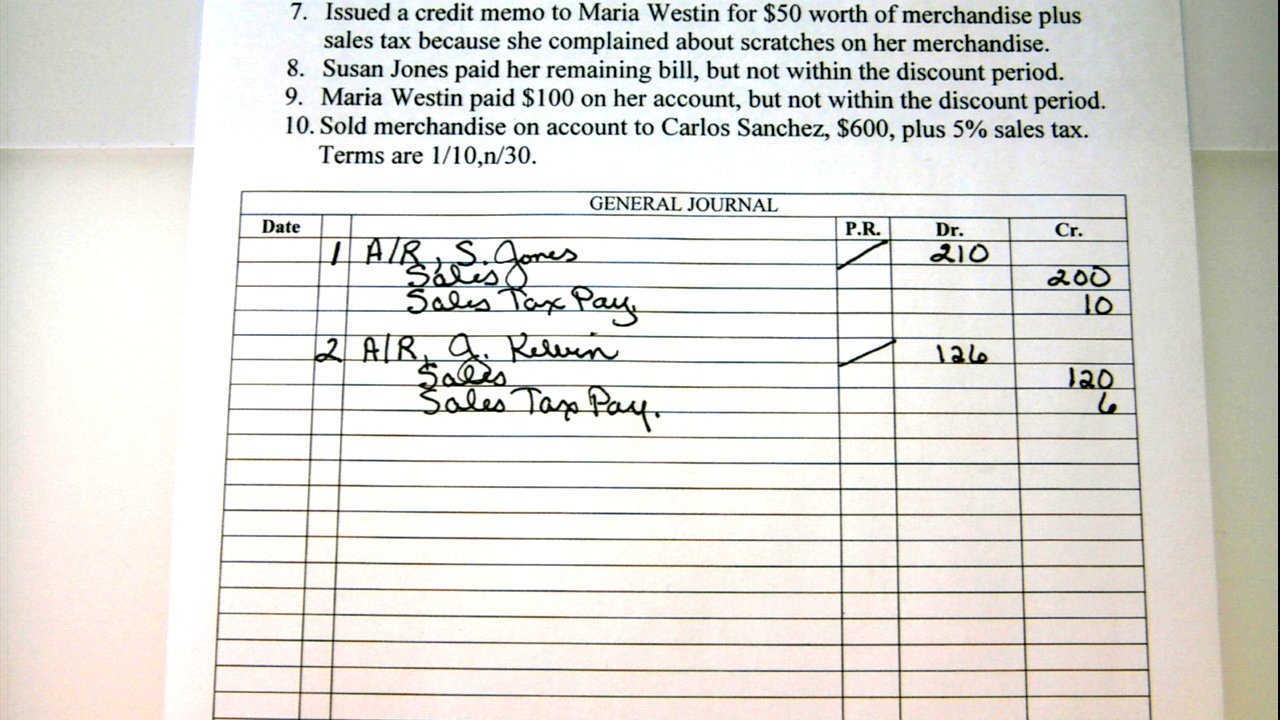 7. Issued a credit memo to Maria Westin for $50 worth of merchandise plus
sales tax because she complained about scratches on her merchandise.
8. Susan Jones paid her remaining bill, but not within the discount period.
9. Maria Westin paid $100 on her account, but not within the discount period.
10. Sold merchandise on account to Carlos Sanchez, $600, plus 5% sales tax.
Terms are 1/10,n/30.
GENERAL JOURNAL
Date P.R. Dr. Cr.
1 A/R, S. Jones 210
Sales 200
Sales Tax Pay. 10
2 A/R, J. Kelvin 126
Sales 120
Sales Tax Pay. 6